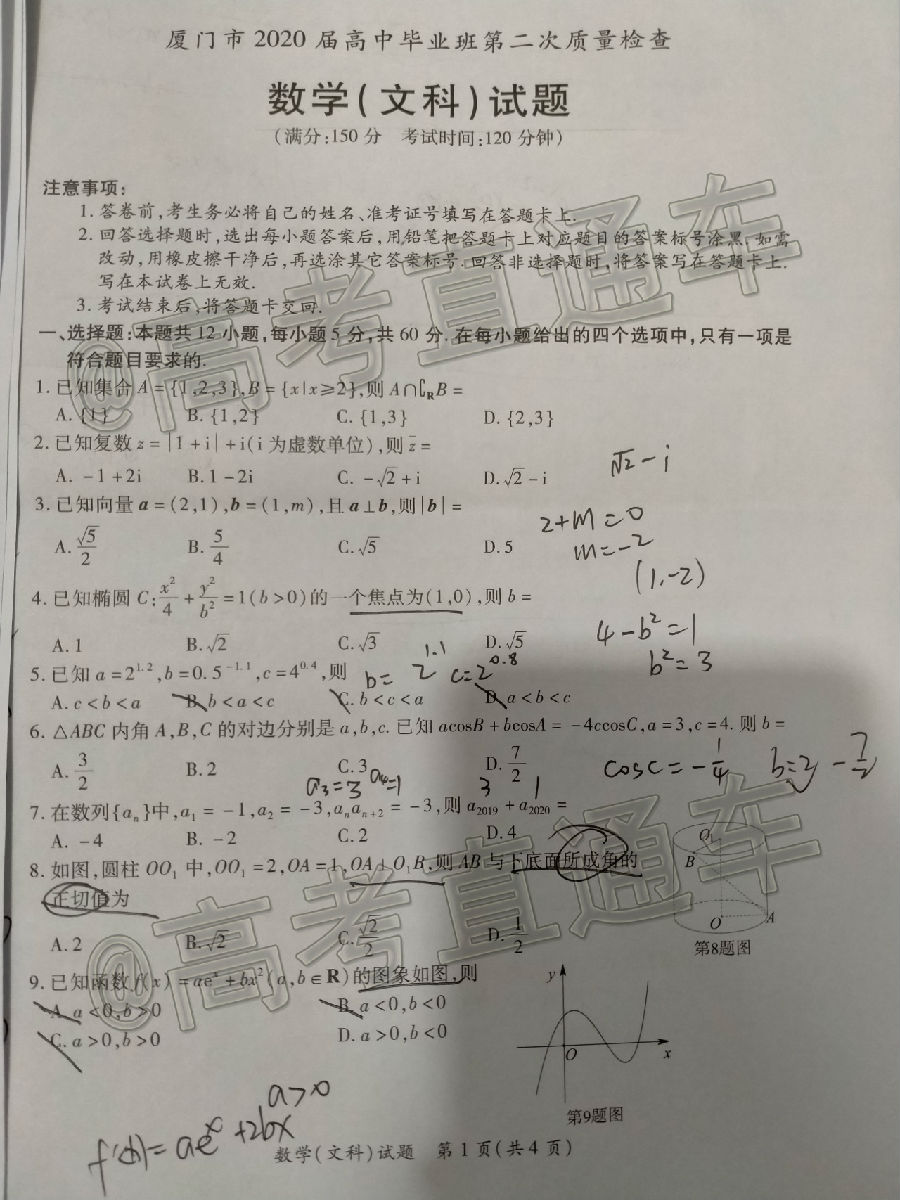 厦门市 2020 届高中毕业班第二次质量检查
数学(文科)试题
(满分:150 分 考试时间:120 分钟)
注意事项:
1. 答卷前,考生务必将自己的姓名、准考证号填写在答题卡上.
2. 回答选择题时,选出每小题答案后,用铅笔把答题卡上对应题目的答案标号涂黑. 如需
改动,用橡皮擦干净后,再选涂其它答案标号. 回答非选择题时,将答案写在答题卡上.
写在本试卷上无效.
3. 考试结束后,将答题卡交回.
一、选择题:本题共 12 小题,每小题 5 分,共 60 分. 在每小题给出的四个选项中,只有一项是
符合题目要求的.
1. 已知集合 A={1,2,3},B={x|x≥2},则 A∩∁RB=
A. {1} B. {1,2} C. {1,3} D. {2,3}
2. 已知复数 z=|1+i|+i(i 为虚数单位),则 z̄=
A. -1+2i B. 1-2i C. -√2+i D. √2-i
√2-i
3. 已知向量 a=(2,1),b=(1,m),且 a⊥b,则|b|=
A. √5/2 B. 5/4 C. √5 D. 5
2+m=0
m=-2
(1,-2)
4. 已知椭圆 C:x²/4+y²/b²=1(b>0)的一个焦点为(1,0),则 b=
A. 1 B. √2 C. √3 D. √5
4-b²=1
b²=3
5. 已知 a=2^1.2,b=0.5^-1.1,c=4^0.4,则
b=2^1.1 c=2^0.8
A. c<b<a B. b<a<c C. b<c<a D. a<b<c
6. △ABC 内角 A,B,C 的对边分别是 a,b,c. 已知 acosB+bcosA=-4ccosC,a=3,c=4. 则 b=
A. 3/2 B. 2 C. 3 D. 7/2
cosC=-1/4 b=2 -7/2
a3=3 a4=1 3 1
7. 在数列{an}中,a1=-1,a2=-3,anan+2=-3,则 a2019+a2020=
A. -4 B. -2 C. 2 D. 4
8. 如图,圆柱 OO1 中,OO1=2,OA=1,OA⊥O1B,则 AB 与下底面所成角的
正切值为
A. 2 B. √2 C. √2/2 D. 1/2
O1
B
O
A
第8题图
9. 已知函数 f(x)=ae^x+bx²(a,b∈R)的图象如图,则
A. a<0,b>0 B. a<0,b<0
C. a>0,b>0 D. a>0,b<0
y
O
x
第9题图
a>0
f'(x)=ae^x+2bx
数学(文科)试题 第 1 页(共 4 页)
@高考直通车
@高考直通车